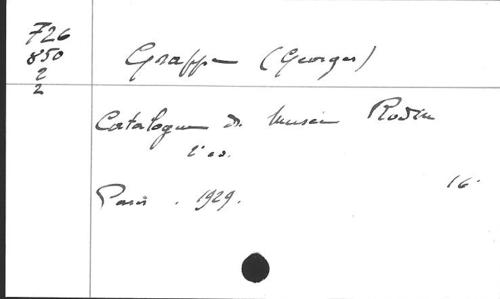 726
850
2
2
Grappe (Georges)
Catalogue du Musée Rodin
2e ed.
Paris . 1929.
16°